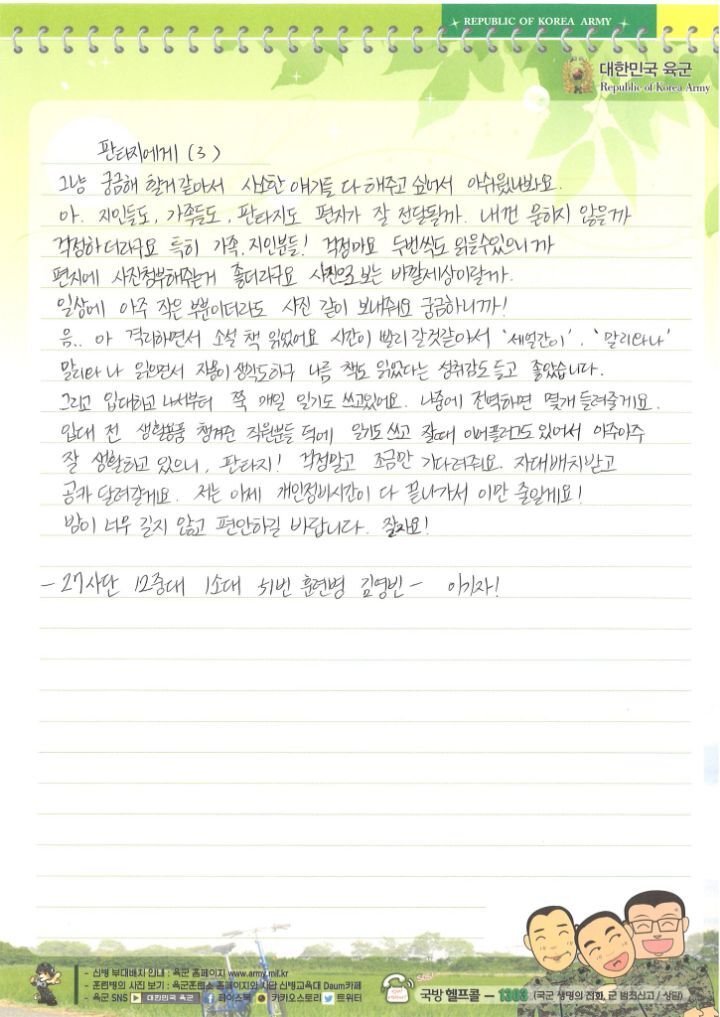 REPUBLIC OF KOREA ARMY
대한민국 육군
Republic of Korea Army
판타지에게 (3)
그냥 궁금해 할거 같아서 사소한 얘기들 다 해주고 싶어서 아쉬웠나봐요.
아. 지인들도, 가족들도, 판타지도 편지가 잘 전달될까. 내껀 묻히지 않을까
걱정하더라구요 특히 가족, 지인분들! 걱정마요 두번씩도 읽을수있으니까
편지에 사진첨부해주는거 좋더라구요 사진으로 보는 바깥세상이랄까.
일상에 아주 작은 부분이더라도 사진 같이 보내줘요 궁금하니까!
음.. 아 격리하면서 소설 책 읽었어요 시간이 빨리 갈것같아서 '세월간이', '말리타나'
말리타나 읽으면서 자몽이 생각도하구 나름 책도 읽었다는 성취감도 들고 좋았습니다.
그리고 입대하고 나서부터 쭉 매일 일기도 쓰고있어요. 나중에 전역하면 몇개 들려줄게요.
입대 전 생활용품 챙겨준 직원분들 덕에 일기도 쓰고 잘때 이어플러그도 있어서 아주아주
잘 생활하고 있으니, 판타지! 걱정말고 조금만 기다려줘요. 자대배치받고
공카 달려갈게요. 저는 이제 개인정비시간이 다 끝나가서 이만 줄일게요!
밤이 너무 길지 않고 편안하길 바랍니다. 잘자요!
- 27사단 12중대 1소대 51번 훈련병 김영빈 - 이기자!
- 신병 부대배치 안내 : 육군 홈페이지 www.army.mil.kr
- 훈련병의 사진 보기 : 육군훈련소 홈페이지와 사단 신병교육대 Daum카페
- 육군 SNS 대한민국 육군 페이스북 카카오스토리 트위터
국방헬프콜 - 1303 (국군 생명의 전화, 군 범죄신고 / 상담)